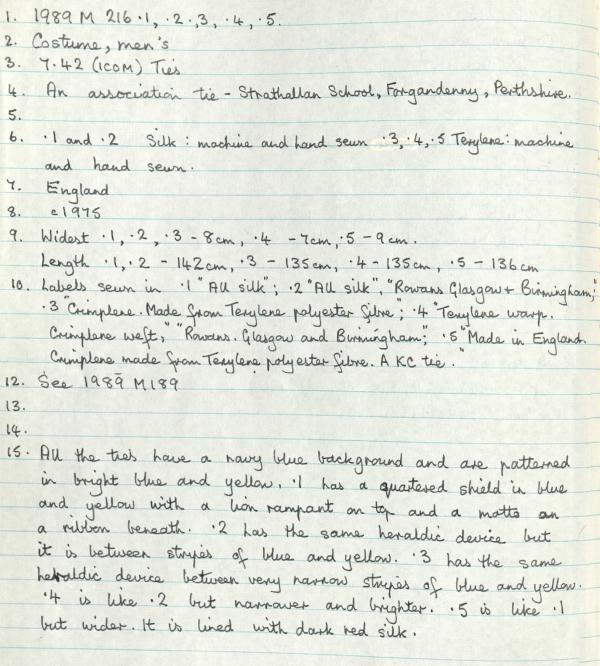 1. 1989 M 216 .1, .2, .3, .4, .5.
2. Costume, men's
3. 7.42 (ICOM) Ties
4. An association tie - Strathallan School, Forgandenny, Perthshire.
5.
6. .1 and .2 Silk: machine and hand sewn .3, .4, .5 Terylene: machine
and hand sewn.
7. England
8. c1975
9. Widest .1, .2, .3 - 8cm, .4 - 7cm, .5 - 9cm.
Length .1, .2 - 142cm, .3 - 135cm, .4 - 135cm, .5 - 136cm
10. Labels sewn in .1 "All silk"; .2 "All silk", "Rowans Glasgow + Birmingham";
.3 "Crimplene. Made from Terylene polyester fibre"; .4 "Terylene warp.
Crimplene weft," "Rowans. Glasgow and Birmingham"; .5 "Made in England.
Crimplene made from Terylene polyester fibre. A KC tie."
12. See 1989 M189
13.
14.
15. All the ties have a navy blue background and are patterned
in bright blue and yellow. .1 has a quartered shield in blue
and yellow with a lion rampant on top and a motto on
a ribbon beneath. .2 has the same heraldic device but
it is between stripes of blue and yellow. .3 has the same
heraldic device between very narrow stripes of blue and yellow.
.4 is like .2 but narrower and brighter. .5 is like .1
but wider. It is lined with dark red silk.